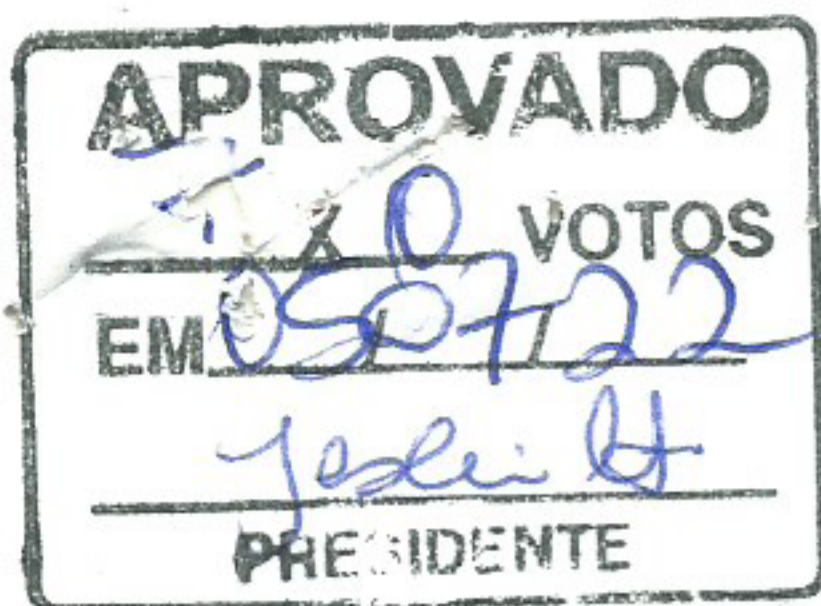 APROVADO
X 0 VOTOS
EM 05/07/22
PRESIDENTE